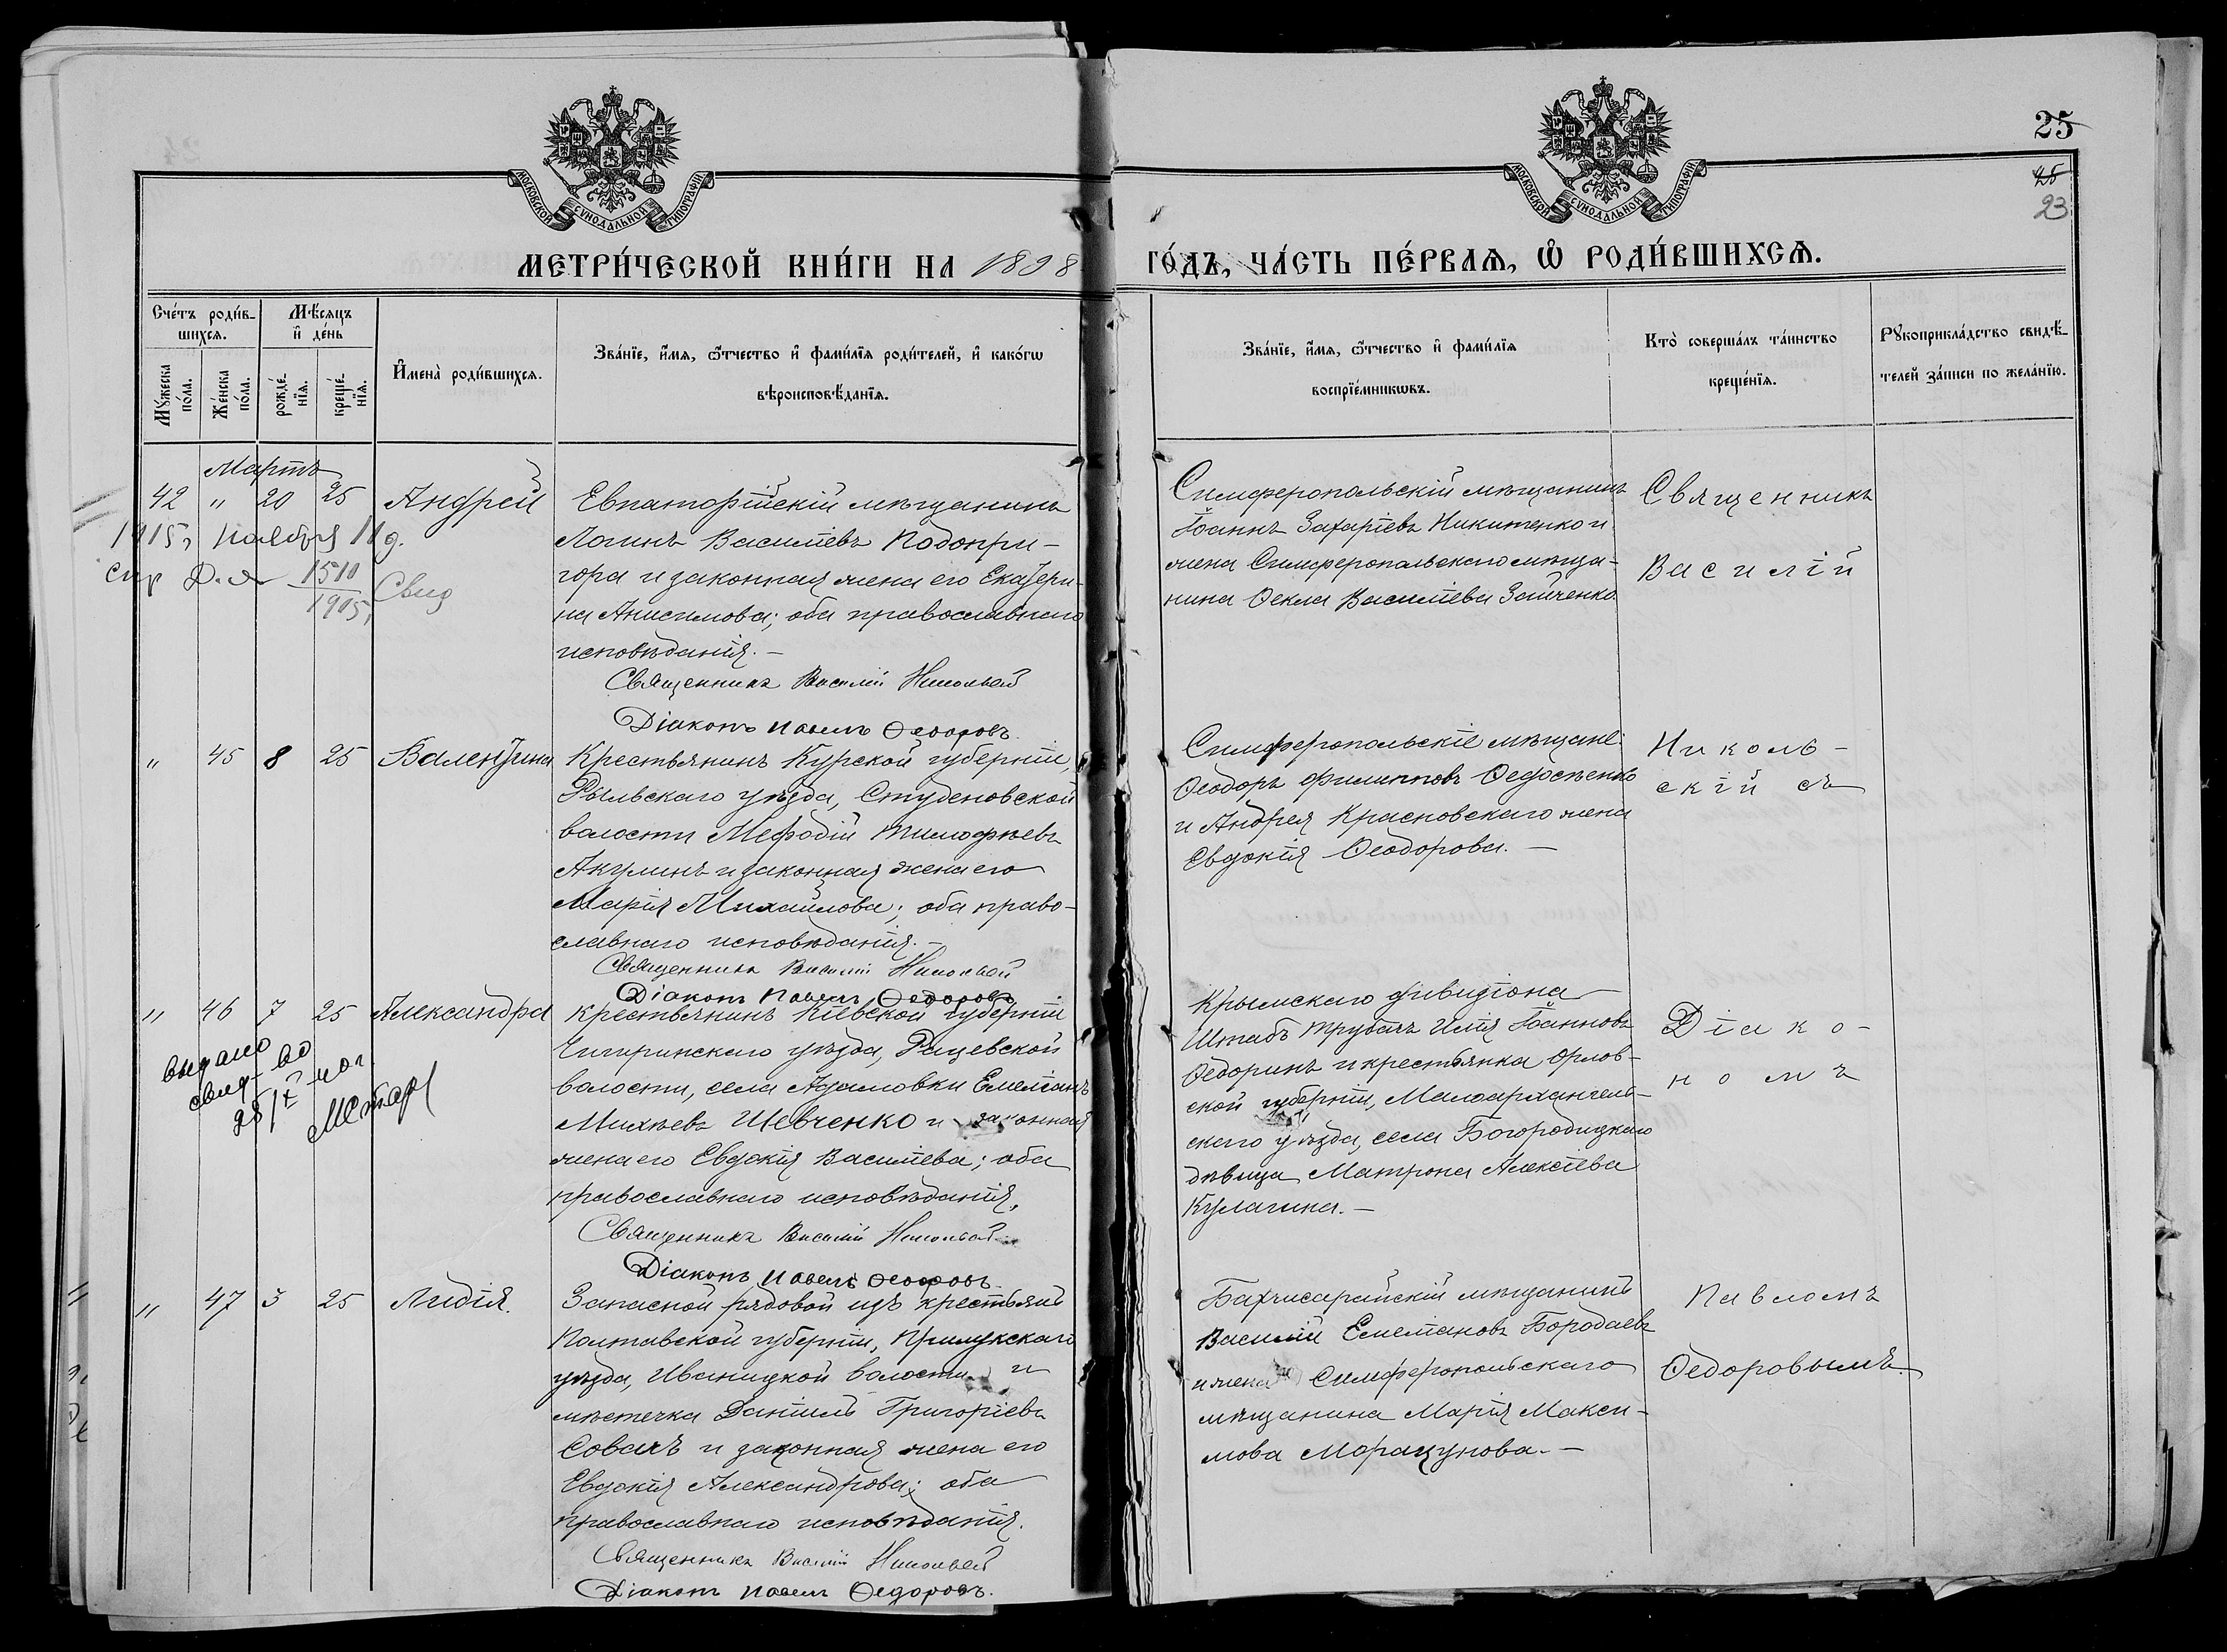 25
25
23
МОСКОВСКОЙ СѴНОДАЛЬНОЙ ТИПОГРАФІИ
МОСКОВСКОЙ СѴНОДАЛЬНОЙ ТИПОГРАФІИ
МЕТРИ́ЧЕСКОЙ КНИ́ГИ НА 1898
ГО́ДЪ, ЧА́СТЬ ПЕ́РВАѦ, Ѡ҆ РОДИ́ВШИХСѦ.
Сче́тъ роди́в-
шихсѧ.
Мѣ́сѧцъ
и҆ де́нь
Мꙋ́жеска
по́ла.
Же́нска
по́ла.
рожде́-
нїѧ.
креще́-
нїѧ.
И҆мена̀ роди́вшихсѧ.
Зва́нїе, и҆́мѧ, ѻ҆́тчество и҆ фами́лїѧ роди́телей, и҆ како́гѡ
вѣроисповѣ́данїѧ.
Зва́нїе, и҆́мѧ, ѻ҆́тчество и҆ фами́лїѧ
воспрїе́мникѡвъ.
Кто̀ соверша́лъ та́инство
креще́нїѧ.
Рꙋкоприкла́дство свидѣ́-
телей за́писи по жела́нїю.
Мартъ
42 " 20 25 Андрей
1915, ноября 11 д.
спр Д. № 1510
1915, Свид
Евпаторійскій мѣщанинъ
Логинъ Василіевъ Подопри-
гора и законная жена его Екатери-
на Анисимова; оба православнаго
исповѣданія.—
Священникъ Василій Никольскій
Діаконъ Павелъ Ѳеодоровъ
Симферопольскій мѣщанинъ
Іоаннъ Захаріевъ Никитенко и
жена Симферопольскаго мѣща-
нина Ѳекла Василіева Зайченко.
" 45 8 25 Валентина
Крестьянинъ Курской губерніи,
Рыльскаго уѣзда, Студеновской
волости Мефодій Тимофѣевъ
Акулинъ и законная жена его
Марія Михаилова; оба право-
славнаго исповѣданія.—
Священникъ Василій Никольскій
Діаконъ Павелъ Ѳедоровъ
Симферопольскіе мѣщане:
Ѳеодоръ Филипповъ Ѳедосѣенко
и Андрея Красновскаго жена
Евдокія Ѳеодорова.—
" 46 7 25 Александра
выдано
свид-во
Крестьянинъ Кіевской губерніи
Чигиринскаго уѣзда, Рацевской
волости, села Адамовки Емеліанъ
Михѣевъ Шевченко и законная
жена его Евдокія Василіева; оба
православнаго исповѣданія,
Священникъ Василій Никольскій
Діаконъ Павелъ Ѳеодоровъ
Крымскаго дивизіона
Штабъ трубачъ Илія Іоанновъ
Ѳедоринъ и крестьянка Орлов-
ской губерніи, Малоархангель-
скаго уѣзда, села Богородицкаго
дѣвица Матрона Алексіева
Кулагина.—
" 47 3 25 Лидія.
Запасной рядовой изъ крестьянъ
Полтавской губерніи, Прилукскаго
уѣзда, Иваницкой волости и
мѣстечка Даніилъ Григоріевъ
Совачъ и законная жена его
Евдокія Александрова; оба
православнаго исповѣданія.
Священникъ Василій Никольскій
Діаконъ Павелъ Ѳедоровъ.
Бахчисарайскій мѣщанинъ
Василій Емеліановъ Бородаевъ
и жена Симферопольскаго
мѣщанина Марія Макси-
мова Морачунова.—
Священникъ
Василій
Николь-
скій съ
Діако-
номъ
Павломъ
Ѳедоровымъ.